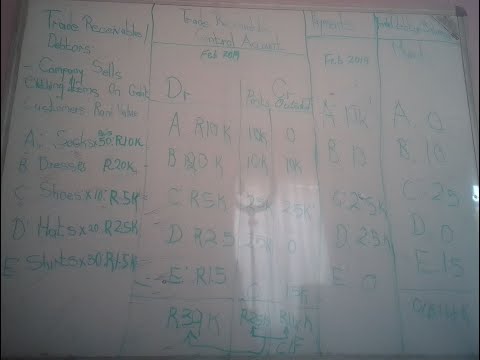 Trade Receivable/
Debtors
- Company Sells
Clothing Items On Credit
Customers Rand Value
A: Socks x 50: R10K
B Dresses R20K
C Shoes x 10: R5K
D Hats x 20 R2.5K
E Shirts x 30: R1.5K
Trade Receivable
Control Account
Feb 2019
Dr
Cr
A R10K 10K 0
B R20K 10K 10K
C R5K 2.5K 2.5K
D R2.5 2.5K 0
E R1.5
R39K R25K R14K
Payments
Feb 2019
A 10K
B 10
C 2.5K
D 2.5K
E 0
March
A 0
B 10
C 2.5
D 0
E 1.5